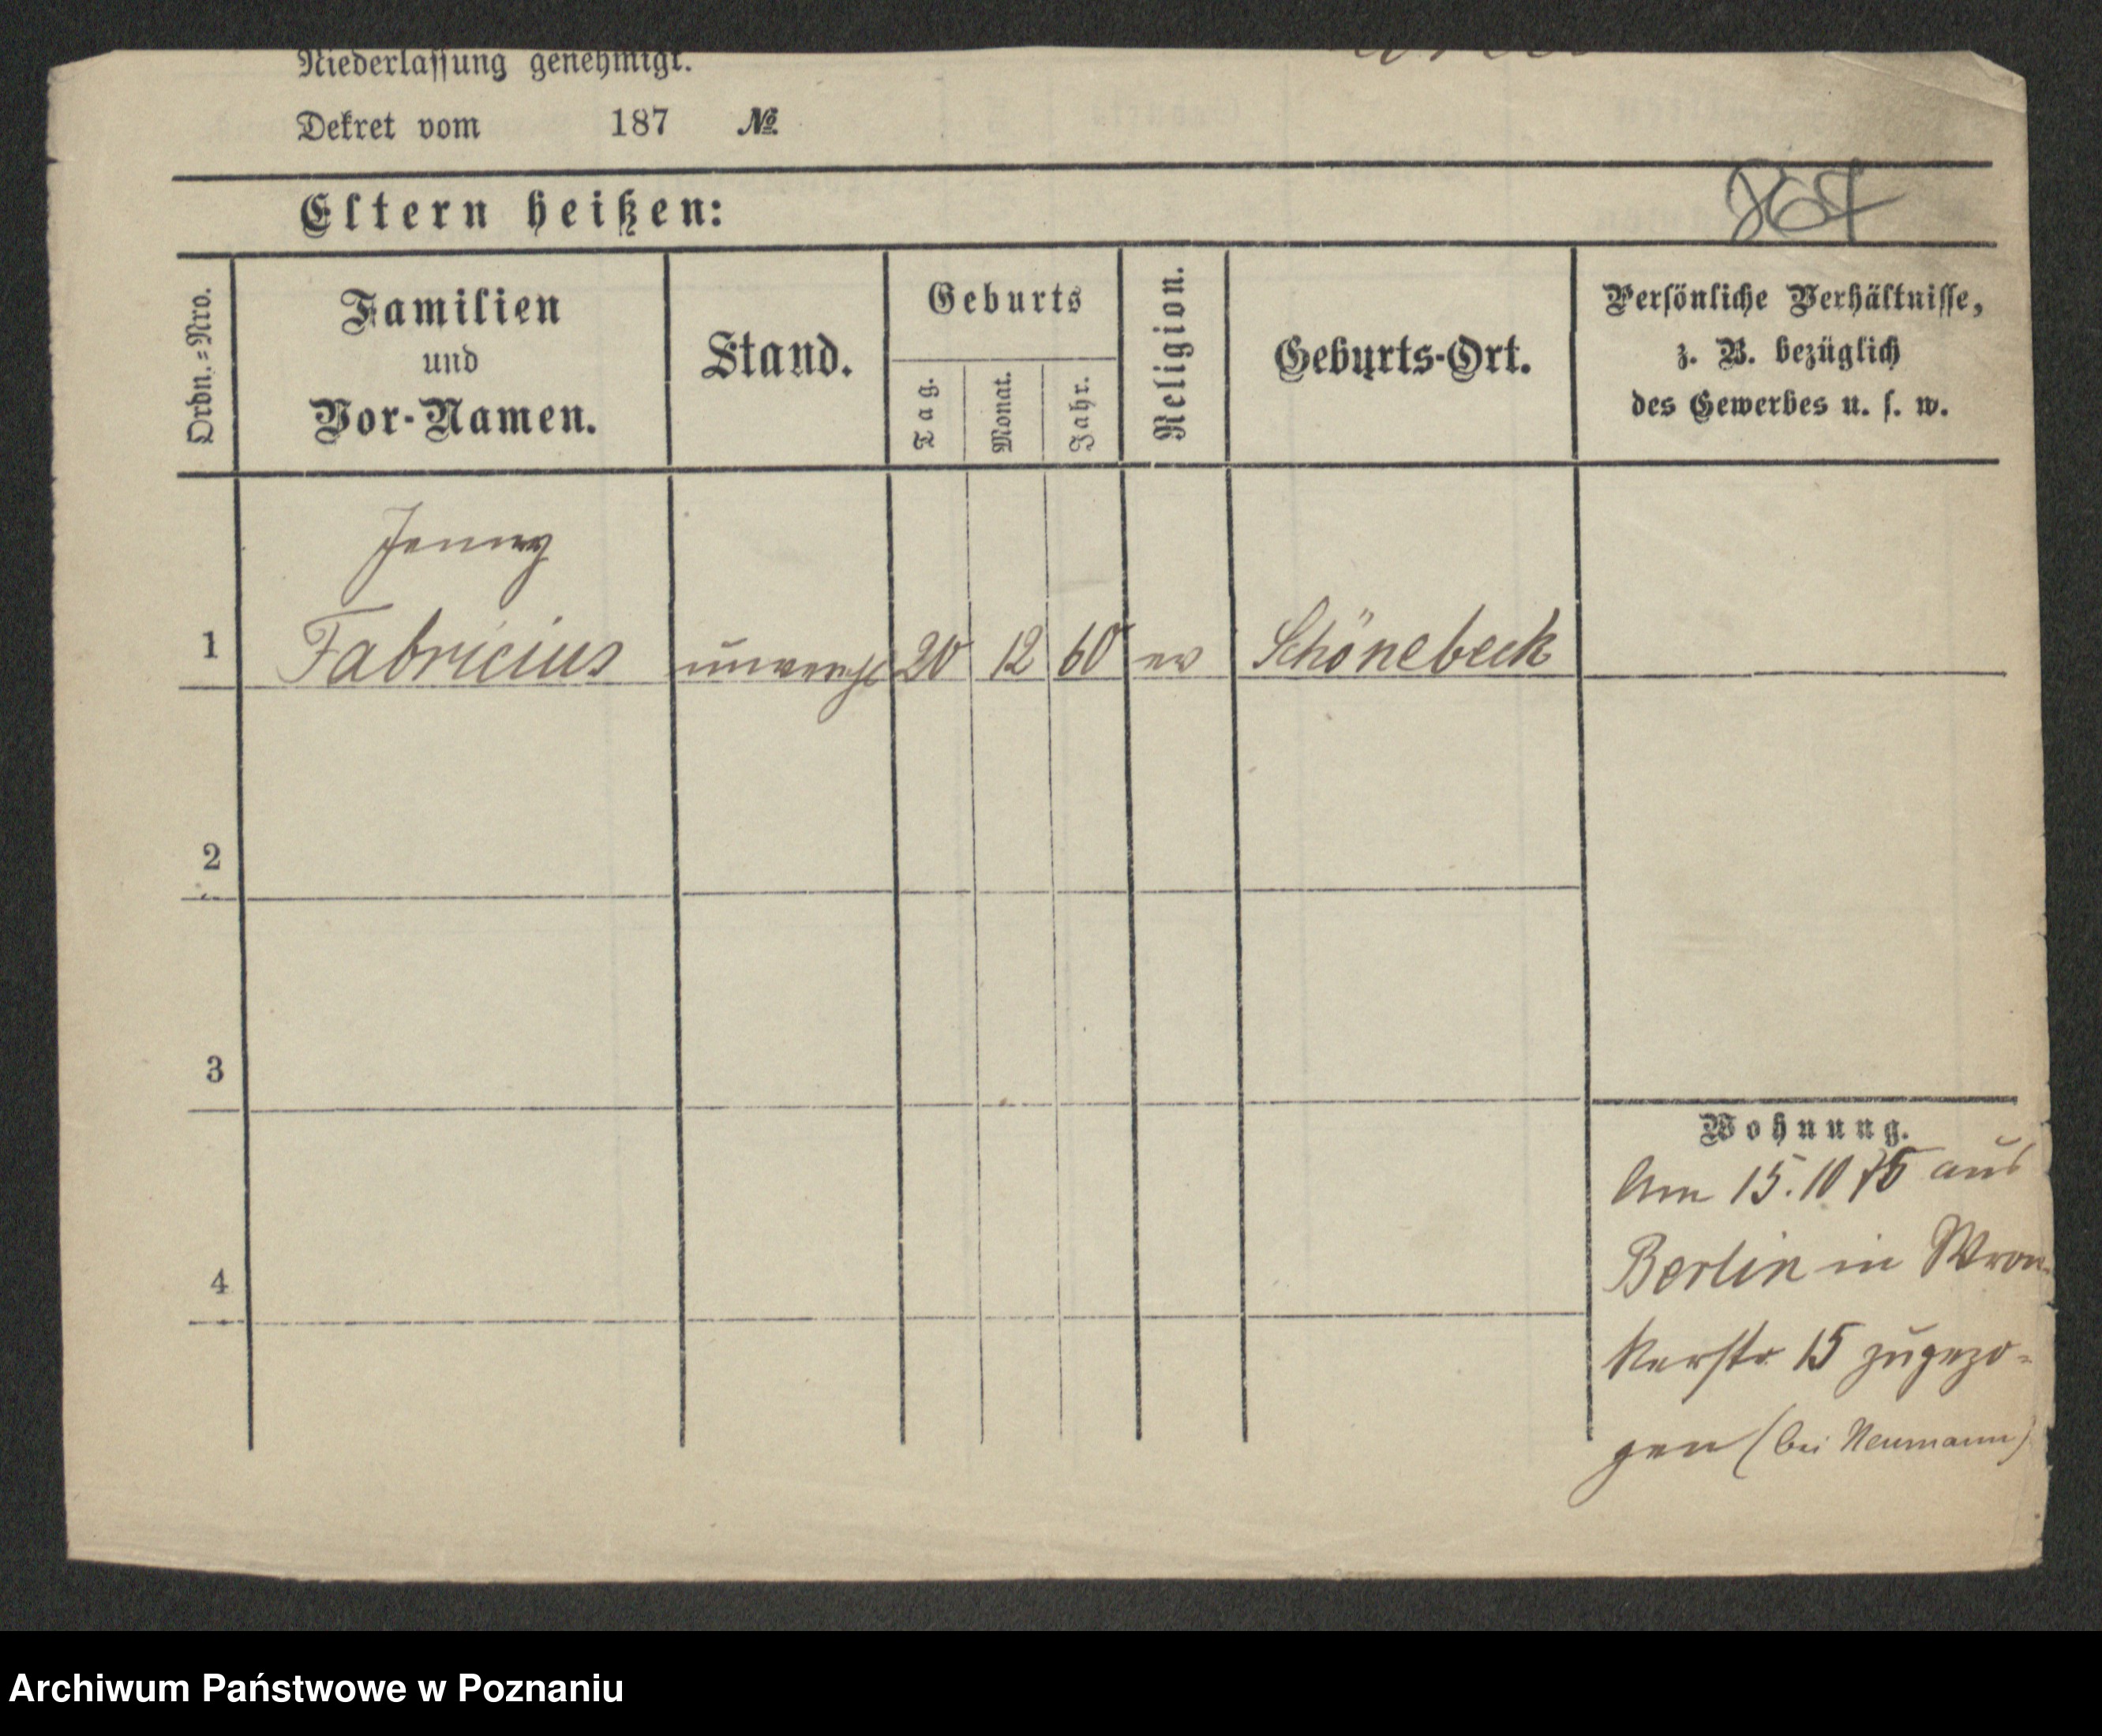 Niederlassung genehmigt.
Dekret vom 187 №
Eltern heißen:
867
Ordn.=Nro.
Familien
und
Vor-Namen.
Stand.
Geburts
Tag.
Monat.
Jahr.
Religion.
Geburts-Ort.
Persönliche Verhältnisse,
z. B. bezüglich
des Gewerbes u. s. w.
Jenny
1 Fabricius unvereh 20 12 60 ev Schönebeck
2
3
4
Wohnung.
Am 15.10 75 aus
Berlin in Wron-
kerstr 15 zugezo-
gen (bei Neumann)
Archiwum Państwowe w Poznaniu